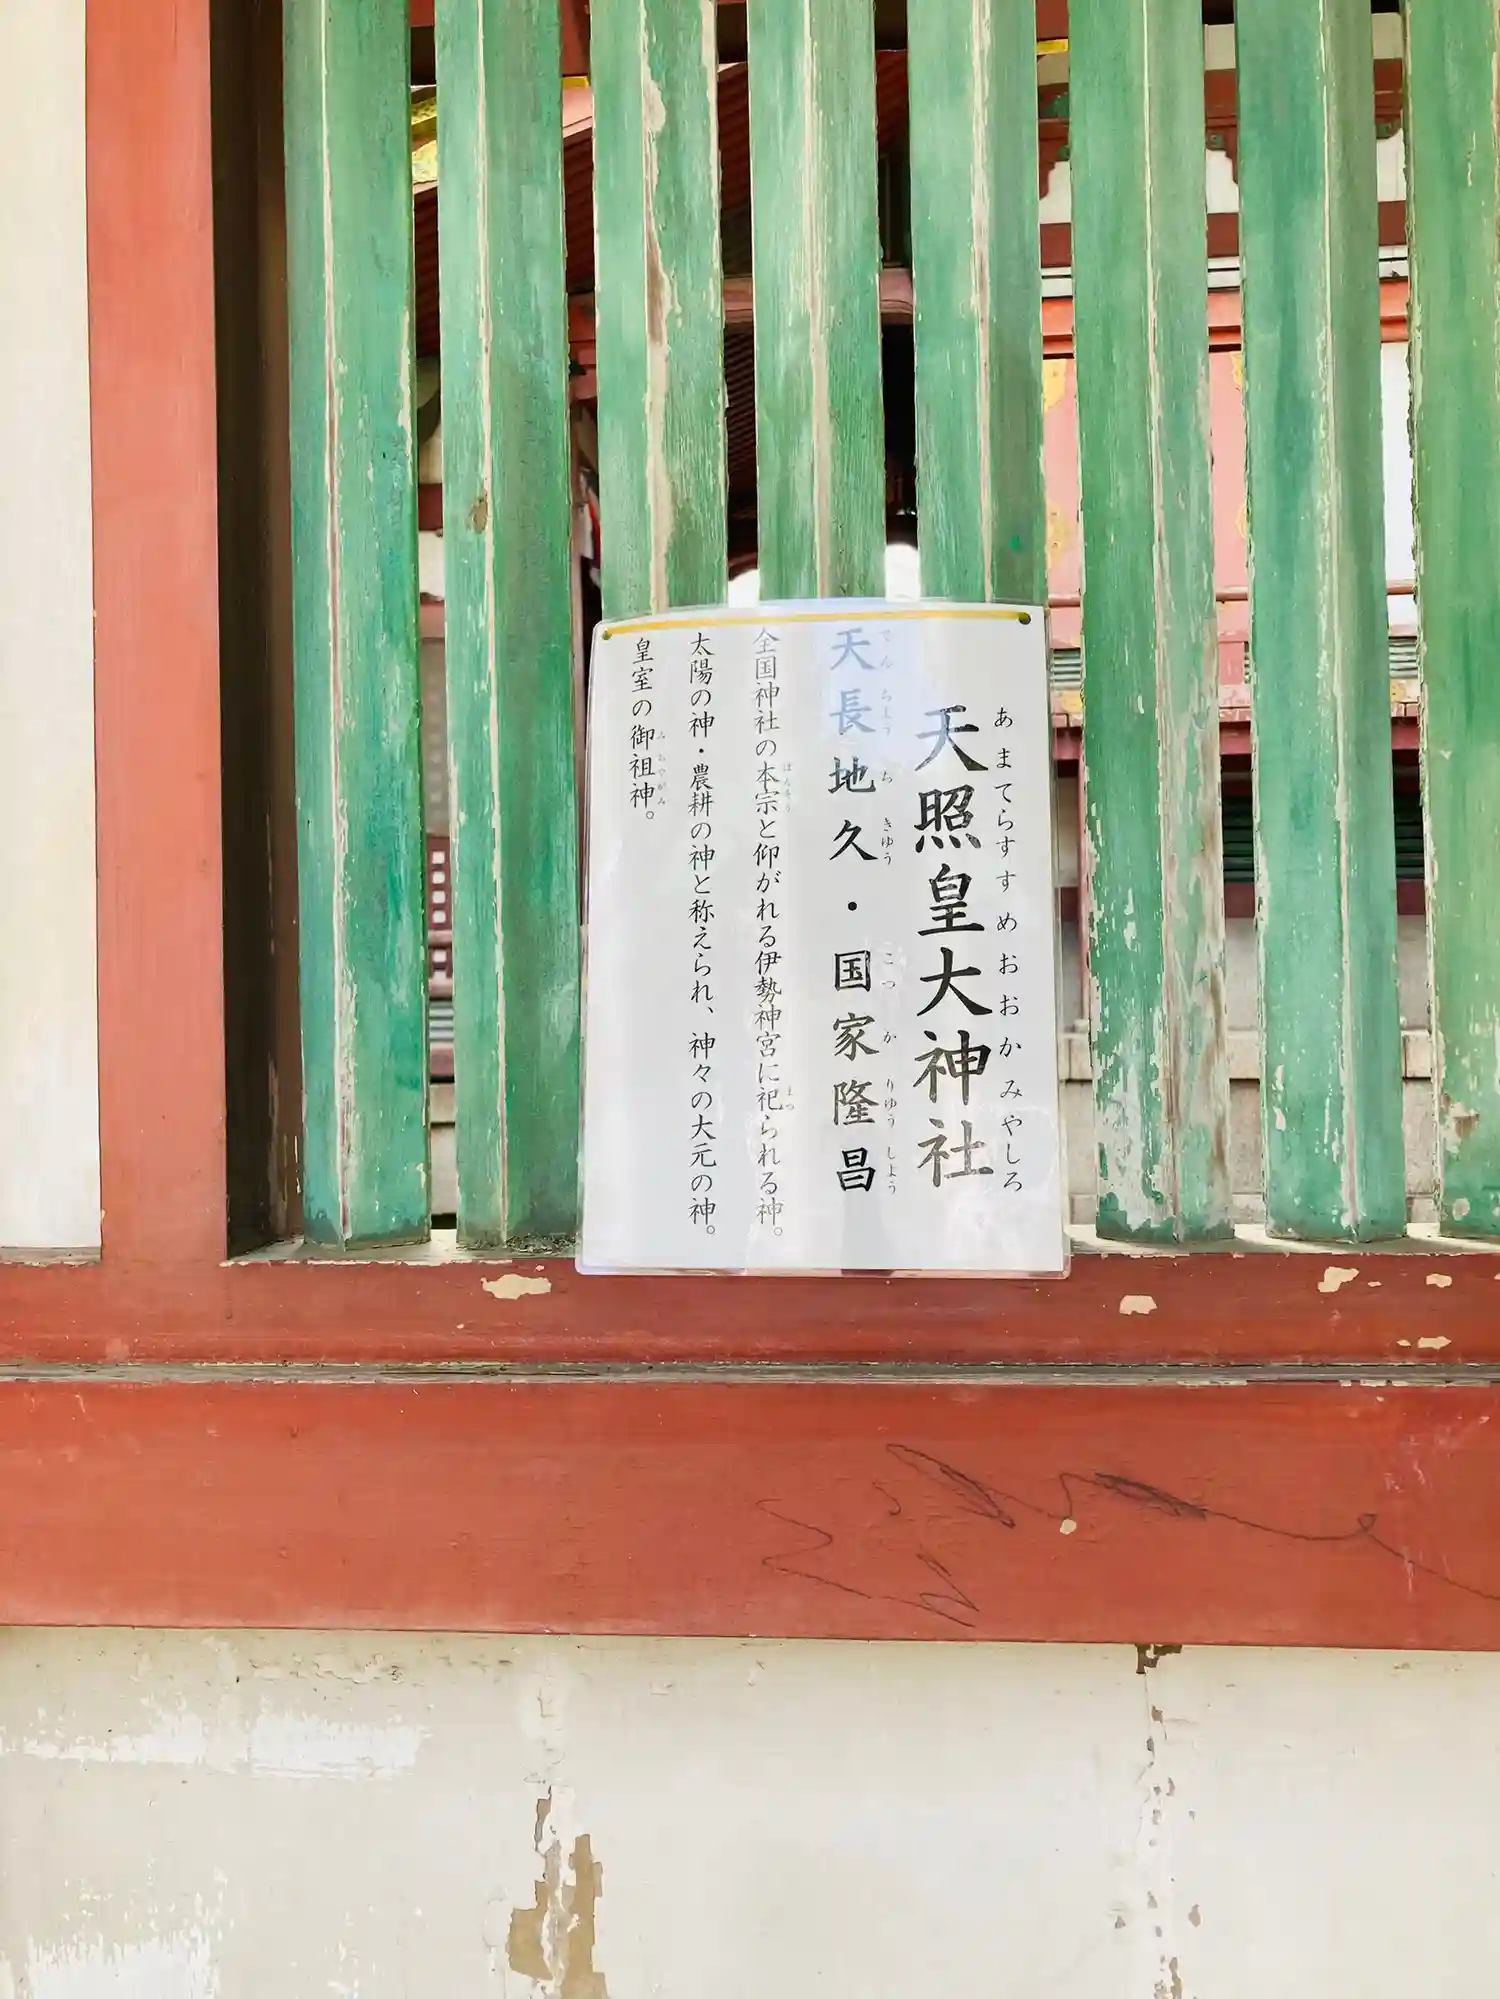 天照皇大神社
あまてらすすめおおかみやしろ
天長地久・国家隆昌
てんちようちきゆう こつかりゆうしよう
全国神社の本宗と仰がれる伊勢神宮に祀られる神。
ほんそう まつ
太陽の神・農耕の神と称えられ、神々の大元の神。
皇室の御祖神。
みおやがみ